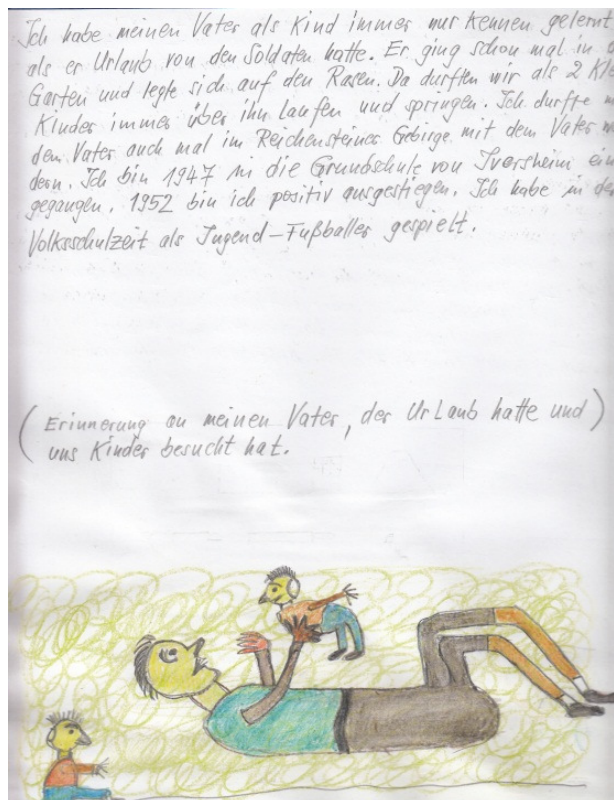 Ich habe meinen Vater als Kind immer nur kennen gelernt
als er Urlaub von den Soldaten hatte. Er ging schon mal in
Garten und legte sich auf den Rasen. Da durften wir als 2
Kinder immer über ihn laufen und springen. Ich durfte
den Vater auch mal im Reichensteiner Gebirge mit dem Vater
dern. Ich bin 1947 in die Grundschule von Iversheim ein
gegangen. 1952 bin ich positiv ausgestiegen. Ich habe in
Volksschulzeit als Jugend-Fußballer gespielt.
(Erinnerung an meinen Vater, der Urlaub hatte und)
uns Kinder besucht hat.